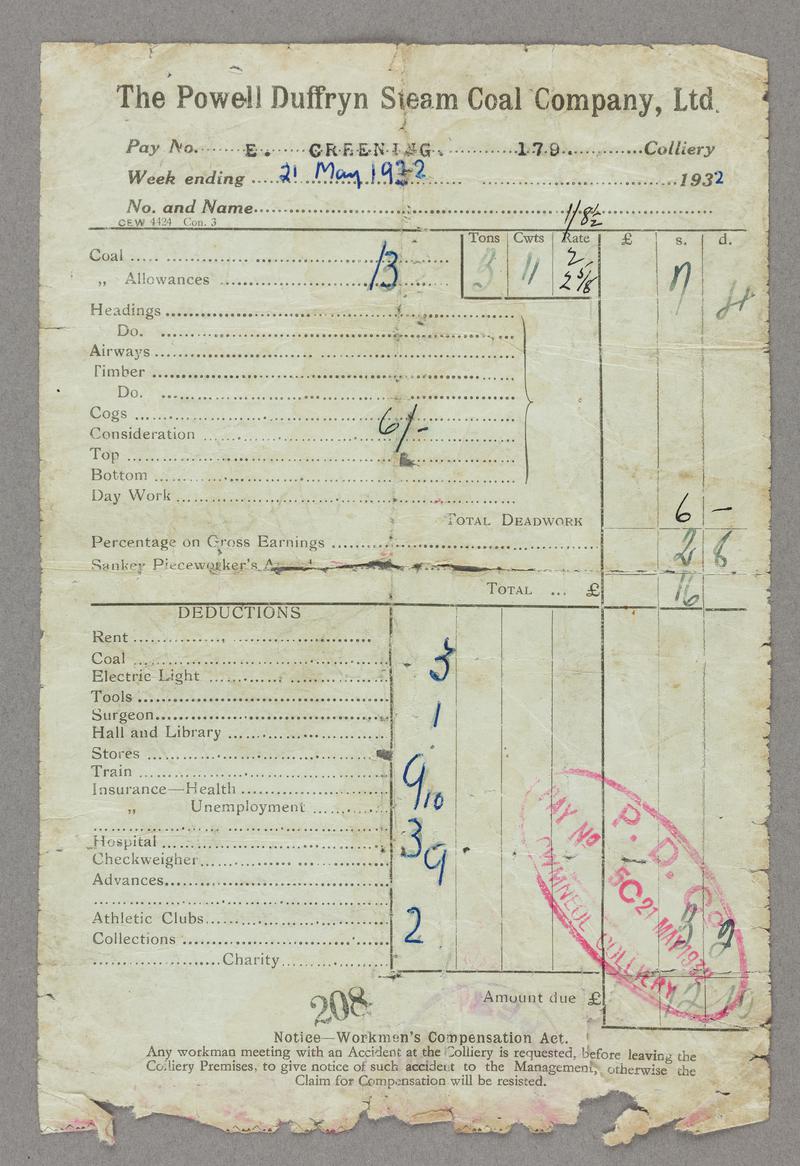 The Powell Duffryn Steam Coal Company, Ltd.
Pay No. E. GREENING. 179 Colliery
Week ending 21 May 1932 1932
No. and Name
CEW 4424 Con. 3
1/8½
Tons Cwts Rate £ s. d.
Coal 13 3 11 2/ 7 4
„ Allowances 2 5/8
Headings
Do.
Airways
Timber
Do.
Cogs
Consideration 6/-
Top
Bottom
Day Work
TOTAL DEADWORK 6 —
Percentage on Gross Earnings 2 8
Sankey Pieceworker's
TOTAL ... £ 16
DEDUCTIONS
Rent
Coal
Electric Light 3
Tools
Surgeon 1
Hall and Library
Stores
Train
Insurance—Health 9/10
„ Unemployment
Hospital 3
Checkweigher 9
Advances
Athletic Clubs 2
Collections
Charity
3 2
P. D. Co.
PAY No 5C 21 MAY 1932
CWMNEOL COLLIERY
208 Amount due £ 12 10
Notice—Workmen's Compensation Act.
Any workman meeting with an Accident at the Colliery is requested, before leaving the
Colliery Premises, to give notice of such accident to the Management, otherwise the
Claim for Compensation will be resisted.